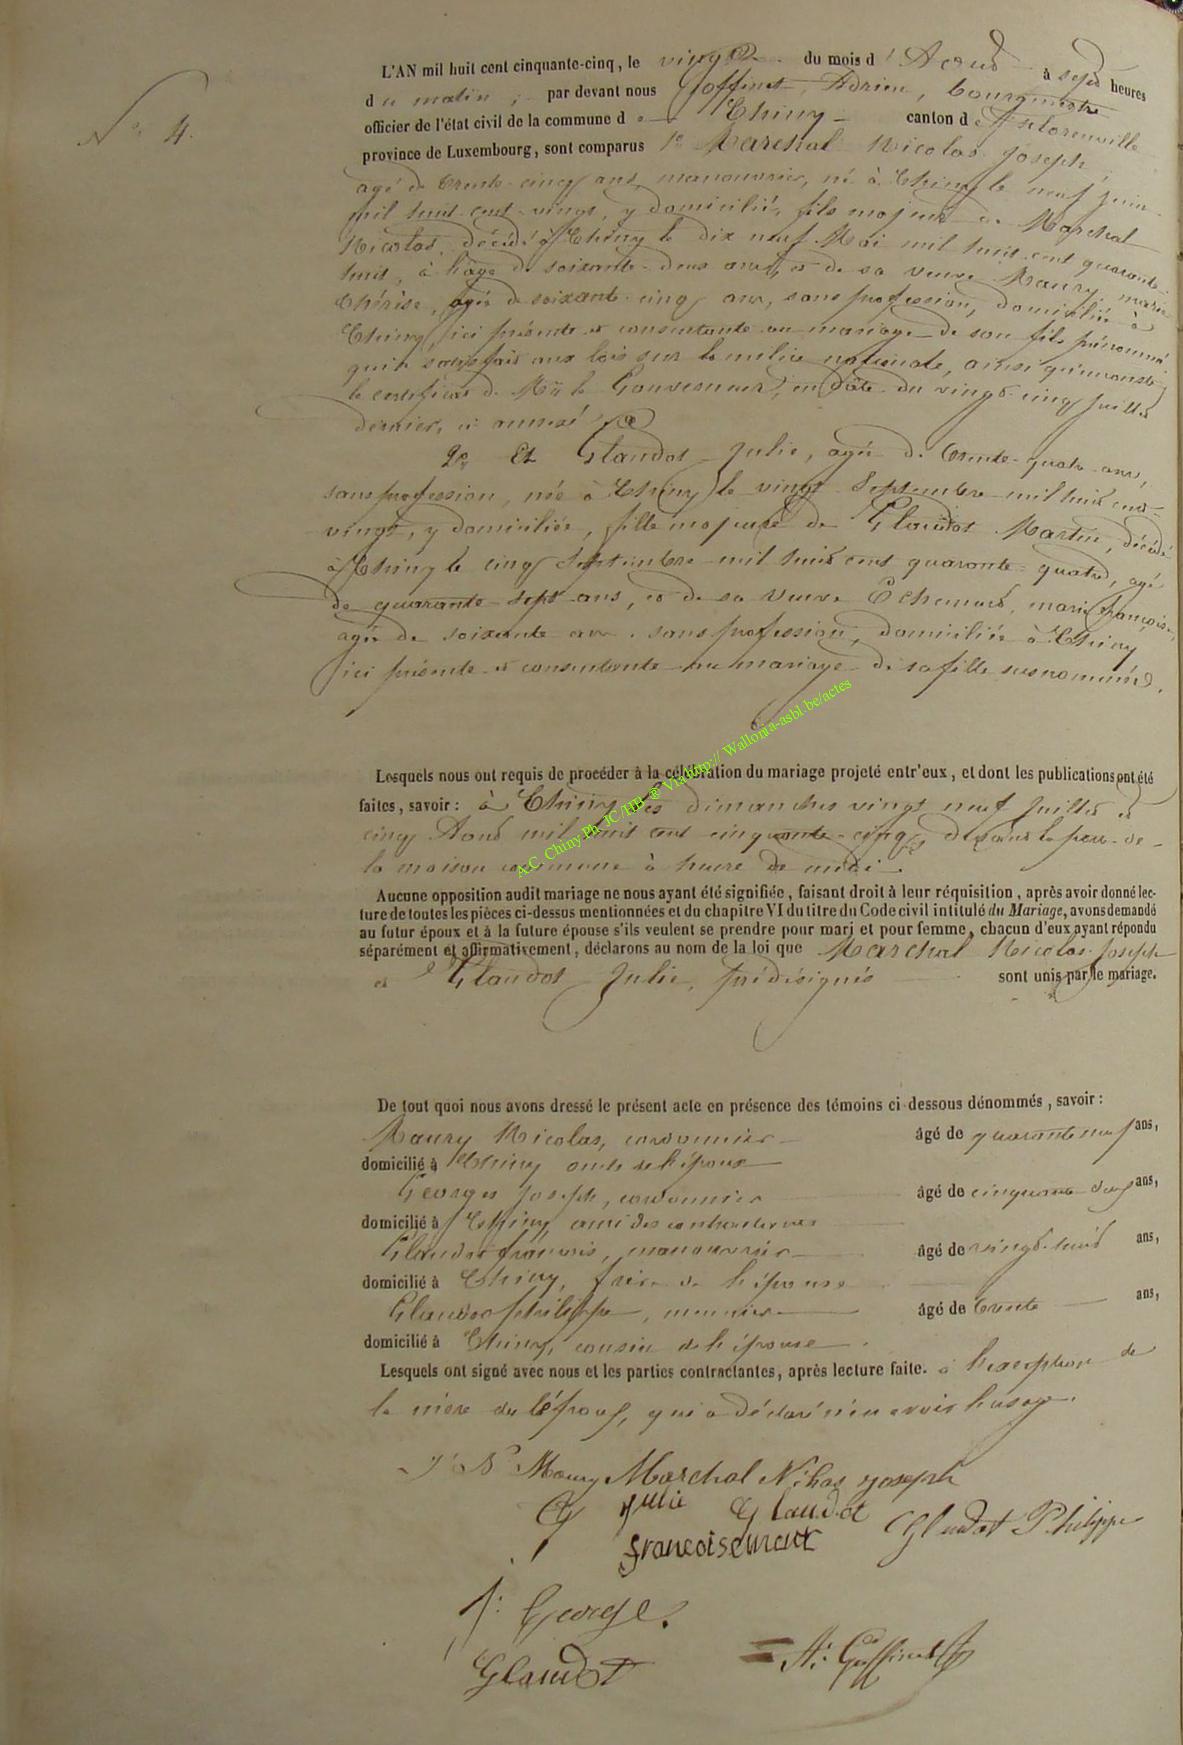 N° 4.
L'AN mil huit cent cinquante-cinq, le vingt du mois d'Aout à sept heures
du matin, par devant nous Goffinet, Adrien, bourgmestre
officier de l'état civil de la commune de Chiny canton de Florenville
province de Luxembourg, sont comparus 1° Marchal Nicolas Joseph,
agé de trente-cinq ans, manouvrier, né à Chiny le neuf juin
mil huit cent vingt, y domicilié, fils majeur de Marchal
Nicolas, décédé à Chiny le dix neuf Mai mil huit cent quarante
huit, à l'âge de soixante-deux ans, et de sa veuve Maury marie
thérèse, agée de soixante-cinq ans, sans profession, domiciliée à
Chiny, ici présente et consentante au mariage de son fils prénommé
qui a satisfait aux lois sur la milice nationale, ainsi qu'il conste
le certificat de Mr le Gouverneur, en date du vingt-cinq juillet
dernier, ci annexé
2° Et Glaudot Julie, agée de trente-quatre ans,
sans profession, née à Chiny le vingt Septembre mil huit cent
vingt, y domiciliée, fille majeure de Glaudot Martin, décédé
à Chiny le cinq Septembre mil huit cent quarante-quatre, agé
de quarante-sept ans, et de sa veuve Echement, marie françoise,
agée de soixante ans, sans profession, domiciliée à Chiny
ici présente et consentante au mariage de sa fille susnommée.
Lesquels nous ont requis de procéder à la célébration du mariage projeté entr'eux, et dont les publications ont été
faites, savoir : à Chiny les dimanches vingt neuf Juillet et
cinq Aout mil huit cent cinquante-cinq, devant la porte de
la maison commune à heure de midi.
Aucune opposition audit mariage ne nous ayant été signifiée, faisant droit à leur réquisition, après avoir donné lec-
ture de toutes les pièces ci-dessus mentionnées et du chapitre VI du titre du Code civil intitulé du Mariage, avons demandé
au futur époux et à la future épouse s'ils veulent se prendre pour mari et pour femme, chacun d'eux ayant répondu
séparément et affirmativement, déclarons au nom de la loi que Marchal Nicolas Joseph
et Glaudot Julie, prédésignés sont unis par le mariage.
De tout quoi nous avons dressé le présent acte en présence des témoins ci-dessous dénommés, savoir :
Maury Nicolas, cordonnier âgé de quarante neuf ans,
domicilié à Chiny oncle de l'époux
Georges Joseph, cordonnier âgé de cinquante deux ans,
domicilié à Chiny ami des contractantes
Glaudot françois, manouvrier âgé de vingt-huit ans,
domicilié à Chiny, frère de l'épouse
Glaudot philippe, meunier âgé de trente ans,
domicilié à Chiny, cousin de l'épouse.
Lesquels ont signé avec nous et les parties contractantes, après lecture faite. à l'exception de
la mère du l'époux, qui a déclaré n'en avoir l'usage.
N Maury Marchal Nikolas joseph
G julie Glaudot Glaudot Philippe
francoise
J: George.
Glaudot Ad: Goffinet
A.C. Chiny Ph JC/HB ® Via http:// Wallonia-asbl.be/actes